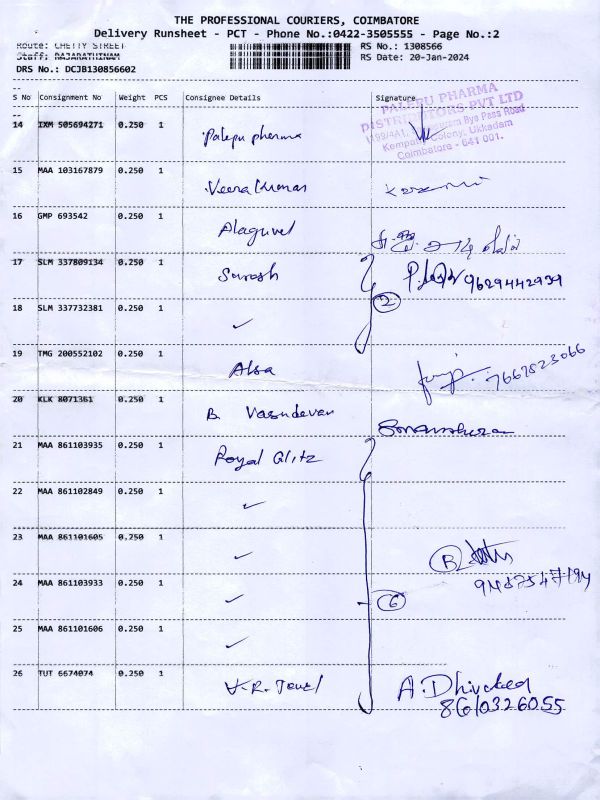 THE PROFESSIONAL COURIERS, COIMBATORE
Delivery Runsheet - PCT - Phone No.:0422-3505555 - Page No.:2
Route: CHETTY STREET RS No.: 1308566
Staff: RAJARATHINAM RS Date: 20-Jan-2024
DRS No.: DCJB130856602
S No Consignment No Weight PCS Consignee Details Signature
PALEPU PHARMA
DISTRIBUTORS PVT LTD
Bye Pass Road
Colony, Ukkadam
Coimbatore - 641 001.
14 IXM 505694271 0.250 1 Palepu pharma
15 MAA 103167879 0.250 1 Veera Kumar
16 GMP 693542 0.250 1 Alaguvel
17 SLM 337809134 0.250 1 Suresh 9629442939
2
18 SLM 337732381 0.250 1 ✓
19 TMG 200552102 0.250 1 Alsa 7667823066
20 KLK 8071361 0.250 1 B. Vasudevan
21 MAA 861103935 0.250 1 Royal Glitz
22 MAA 861102849 0.250 1 ✓
23 MAA 861101605 0.250 1 ✓
24 MAA 861103933 0.250 1 ✓ 6
25 MAA 861101606 0.250 1 ✓
26 TUT 6674074 0.250 1 V.R. Jewel
8610326055